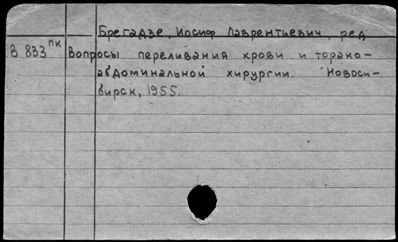 Брегадзе, Иосиф Лаврентьевич, ред
В 833 пк Вопросы переливания крови и торако-
абдоминальной хирургии. Новоси-
бирск, 1955.